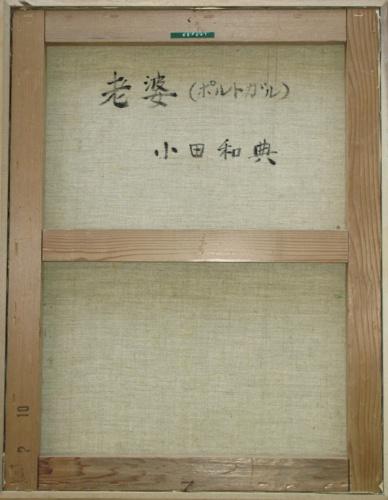 老婆(ポルトガル)
小田和典
10